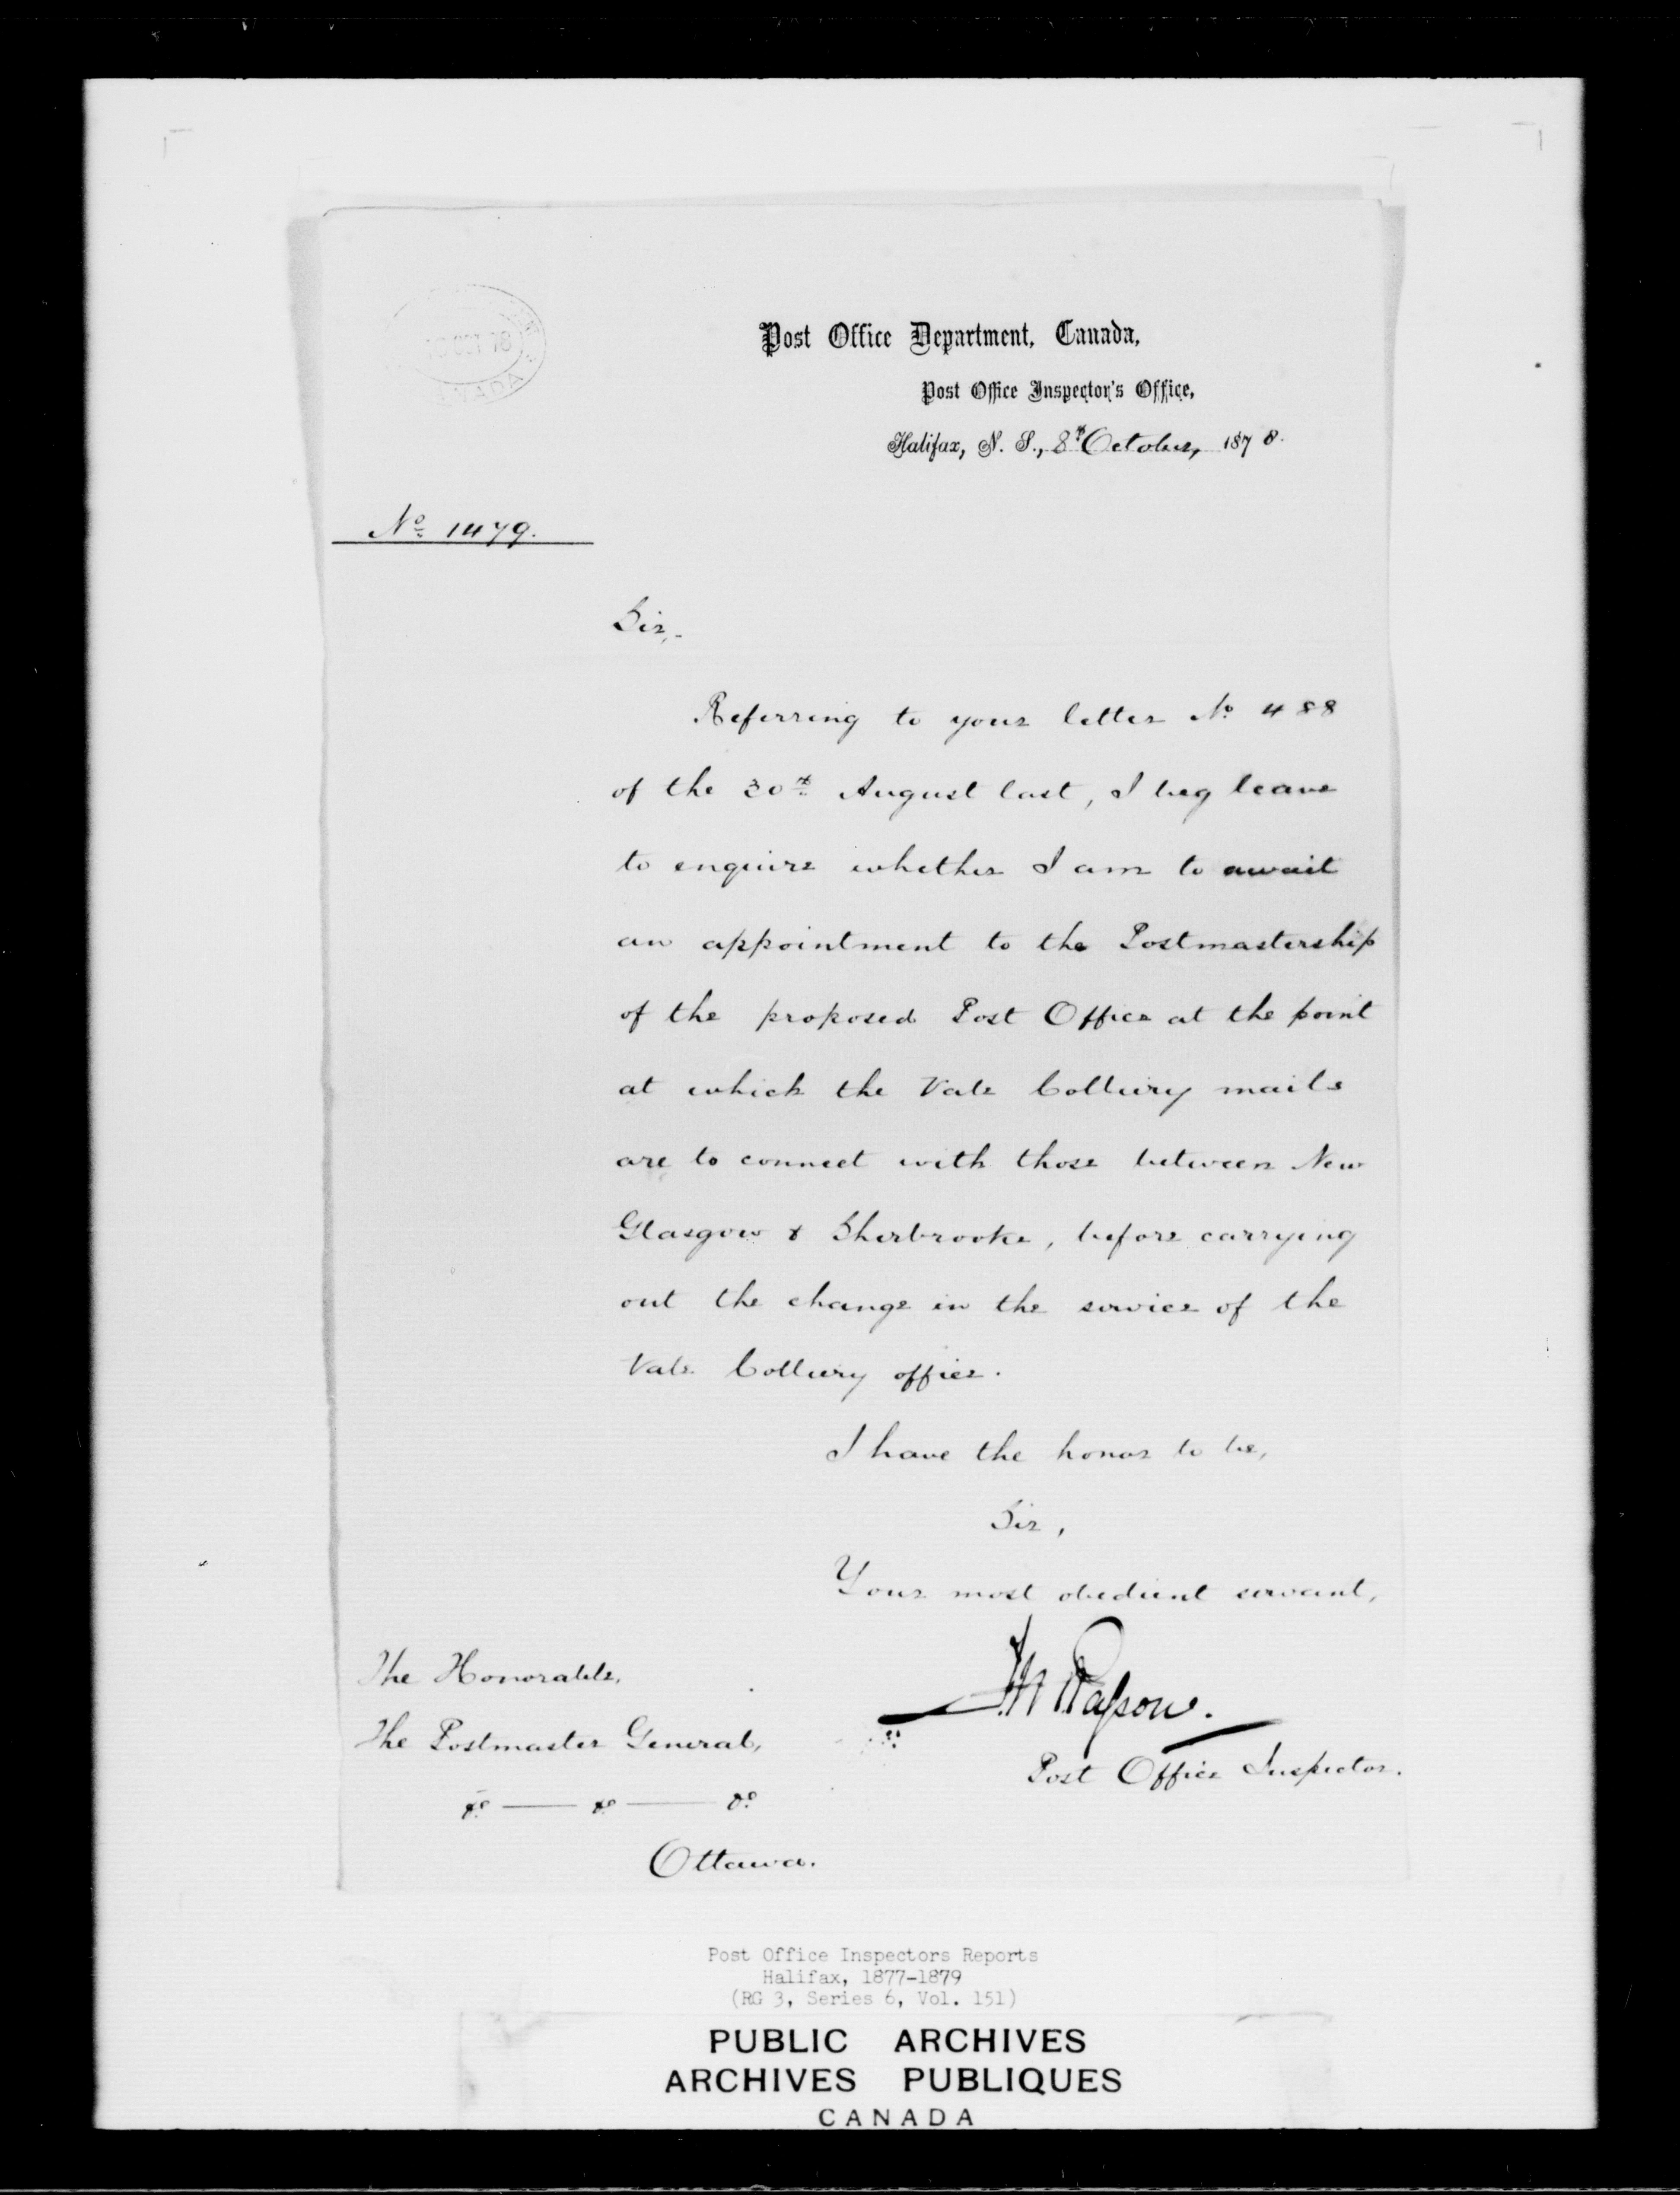 OCT 78
CANADA
Post Office Department, Canada,
Post Office Inspector's Office,
Halifax, N. S., 8th October, 1878.
No 1479.
Sir,
Referring to your letter No 488
of the 30th August last, I beg leave
to enquire whether I am to await
an appointment to the Postmastership
of the proposed Post Office at the point
at which the Vale Colliery mails
are to connect with those between New
Glasgow & Sherbrooke, before carrying
out the change in the service of the
Vale Colliery office.
I have the honor to be,
Sir,
Your most obedient servant,
Post Office Inspector.
The Honorable,
The Postmaster General,
&c — &c — &c
Ottawa.
Post Office Inspectors Reports
Halifax, 1877-1879
(RG 3, Series 6, Vol. 151)
PUBLIC ARCHIVES
ARCHIVES PUBLIQUES
CANADA